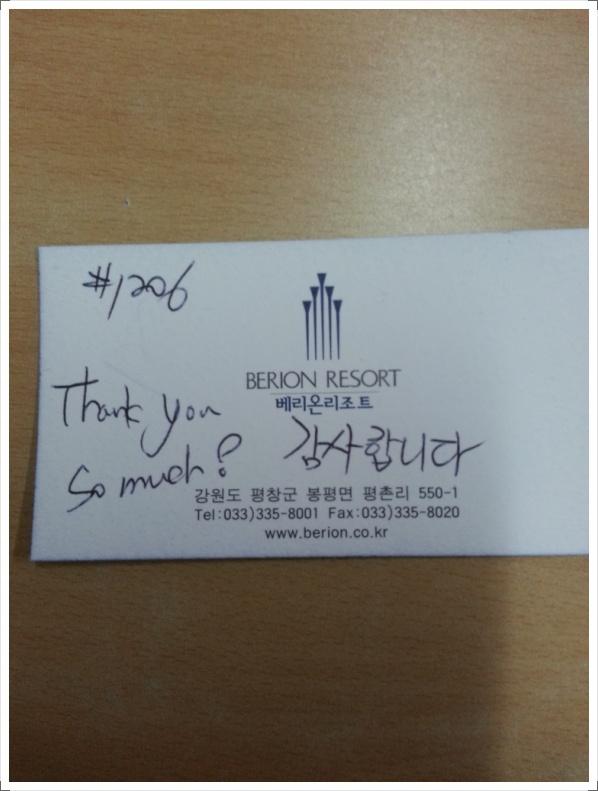 #1206
BERION RESORT
베리온리조트
Thank you
so much? 감사합니다
강원도 평창군 봉평면 평촌리 550-1
Tel:033)335-8001 Fax:033)335-8020
www.berion.co.kr